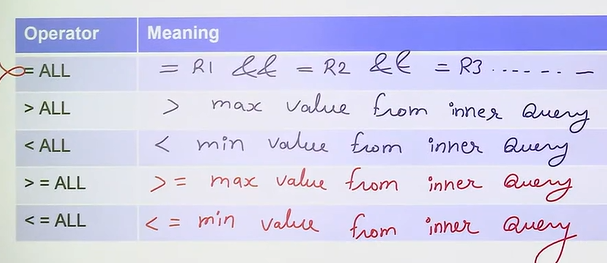 Operator Meaning
= ALL = R1 && = R2 && = R3 .......
> ALL > max value from inner Query
< ALL < min value from inner Query
> = ALL >= max value from inner Query
< = ALL <= min value from inner Query